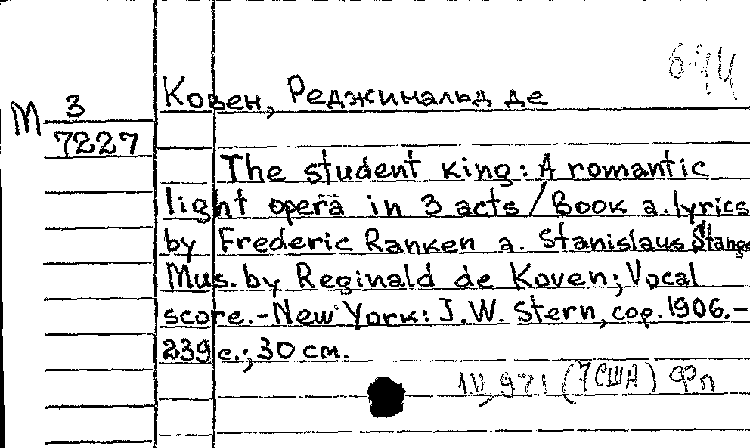 644
Ковен, Реджинальд де
М 3
7227
The student king: A romantic
light opera in 3 acts / Book a. lyrics
by Frederic Ranken a. Stanislaus Stange
Mus. by Reginald de Koven; Vocal
score. - New York: J.W. Stern, cop. 1906. -
239 с.; 30 см.
(7 США)